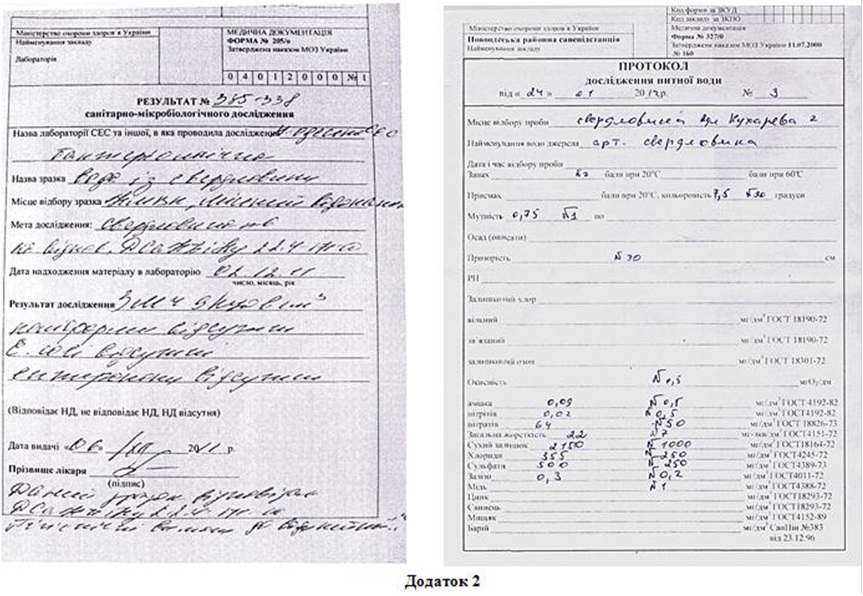 Міністерство охорони здоров'я України
Найменування закладу
Лабораторія
МЕДИЧНА ДОКУМЕНТАЦІЯ
ФОРМА № 205/о
Затверджена наказом МОЗ України
0 4 0 1 2 0 0 0 №1
РЕЗУЛЬТАТ № 385-338
санітарно-мікробіологічного дослідження
Назва лабораторії СЕС та іншої, в яка проводила дослідження
бактеріологічна
Назва зразка вода із свердловини
Місце відбору зразка
Мета дослідження: свердловина
на відпов. ДСанПіну 2.2.4
Дата надходження матеріалу в лабораторію 02.12.11
число, місяць, рік
Результат дослідження ЗМЧ
коліформи відсутні
E. coli відсутні
відсутні
(Відповідає НД, не відповідає НД, НД відсутня)
Дата видачі «06» /XII 2011 р.
Прізвище лікаря
(підпис)
Даний зразок відповідає
ДСанПіну 2.2.4
Код форми за ЗКУД
Код закладу за ЗКПО
Міністерство охорони здоров'я України
Новоодеська районна санепідстанція
Найменування закладу
Медична документація
Форма № 327/0
Затверджена наказом МОЗ України 11.07.2000
№ 160
ПРОТОКОЛ
дослідження питної води
від « 24 » 01 2012р. № 3
Місце відбору проби свердловина вул Кухарева 2
Найменування водо джерела арт. свердловина
Дата і час відбору проби
Запах N2 бали при 20°С бали при 60°С
Присмак бали при 20°С, кольоровість 7,5 N20 градуси
Мутність 0,75 N1 по
Осад (описати)
Прозорість N30 см
РН
Залишковий хлор
вільний мг/дм³ ГОСТ 18190-72
зв'язаний мг/дм³ ГОСТ 18190-72
залишковий озон мг/дм³ ГОСТ 18301-72
Окисність N 0,5 мгО₂/дм
аміака 0,09 N 0,5 мг/дм³ ГОСТ 4192-82
нітритів 0,02 N 0,5 мг/дм³ ГОСТ4192-82
нітратів 64 N50 мг/дм³ ГОСТ 18826-73
Загальна жорсткість 22 N7 мг-екв/дм³ ГОСТ4151-72
Сухий залишок 2150 N 1000 мг/дм³ ГОСТ18164-72
Хлориди 355 N 250 мг/дм³ ГОСТ4245-72
Сульфати 500 N 250 мг/дм³ ГОСТ4389-73
Залізо 0,3 N 0,2 мг/дм³ ГОСТ4011-72
Мідь N1 мг/дм³ ГОСТ4388-72
Цинк мг/дм³ ГОСТ18293-72
Свинець мг/дм³ ГОСТ18293-72
Миш'як мг/дм³ ГОСТ4152-89
Барій мг/дм³ СанПін №383
від 23.12.96
Додаток 2